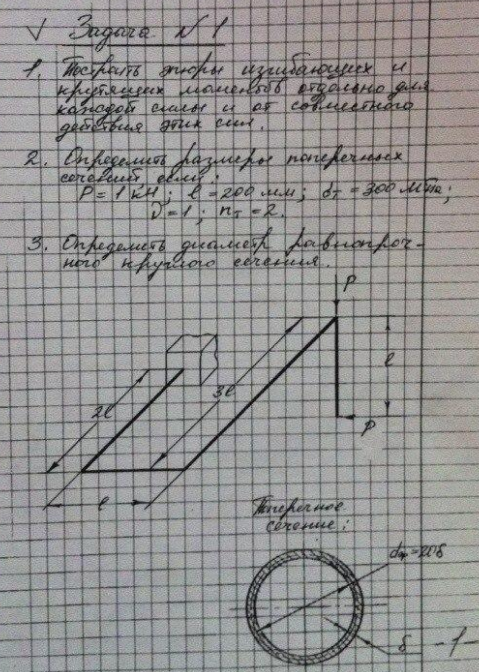 √ Задача №1
1. Построить эпюры изгибающих и
крутящих моментов отдельно для
каждой силы и от совместного
действия этих сил.
2. Определить размеры поперечных
сечений если:
P=1 кН; l=200 мм; σт=300 МПа;
ν=1; nт=2.
3. Определить диаметр равнопроч-
ного круглого сечения.
P
2l
3l
l
P
l
Поперечное
сечение:
dср=20δ
δ
-1-